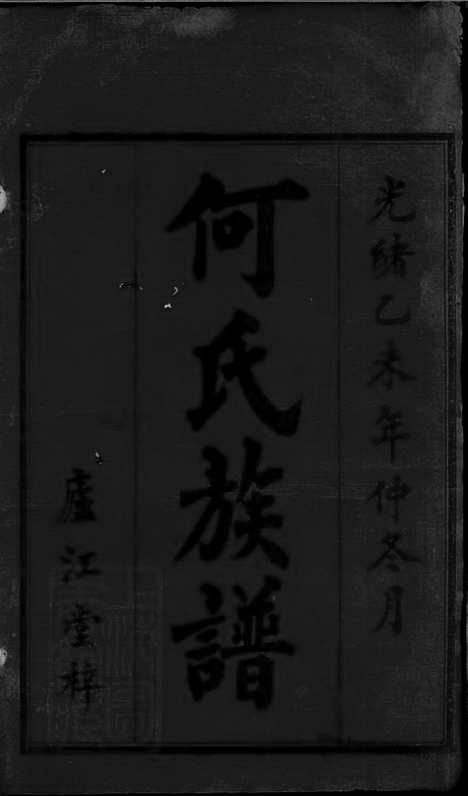 光緒乙未年仲冬月
何氏族譜
廬江堂梓